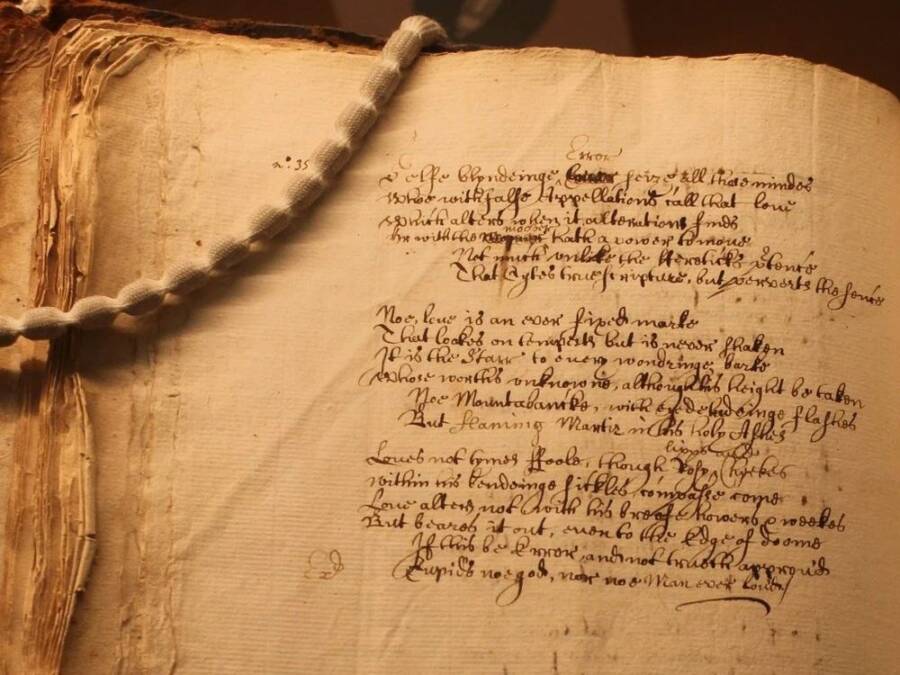 Error
n.º 35
Selfe blyndeinge, seize all those mindes
Whoe with false Appellations call that love
Which alters when it alterations finds
mover
Or with the hath a power to move
Not much unlike the Hereticks ptence
That Cytes true scripture, but perverts the sence
Noe, love is an ever fixed marke
That lookes on tempests but is never shaken
It is the Starr to every wondringe barke
Whose worths unknowne, although his height be taken
Noe Mountabancke, with eye deludeinge flashes
But flaming Martir in his holy Ashes
lipps and
Loves not tymes Foole, though Rosy Cheekes
within his bendeinge sickles compasse come
Love alters not with his breife howers & weekes
But beares it out, even to the Edge of doome
If this be Error, and not trueth approvd
Cupids noe god, nor noe Man ever loved